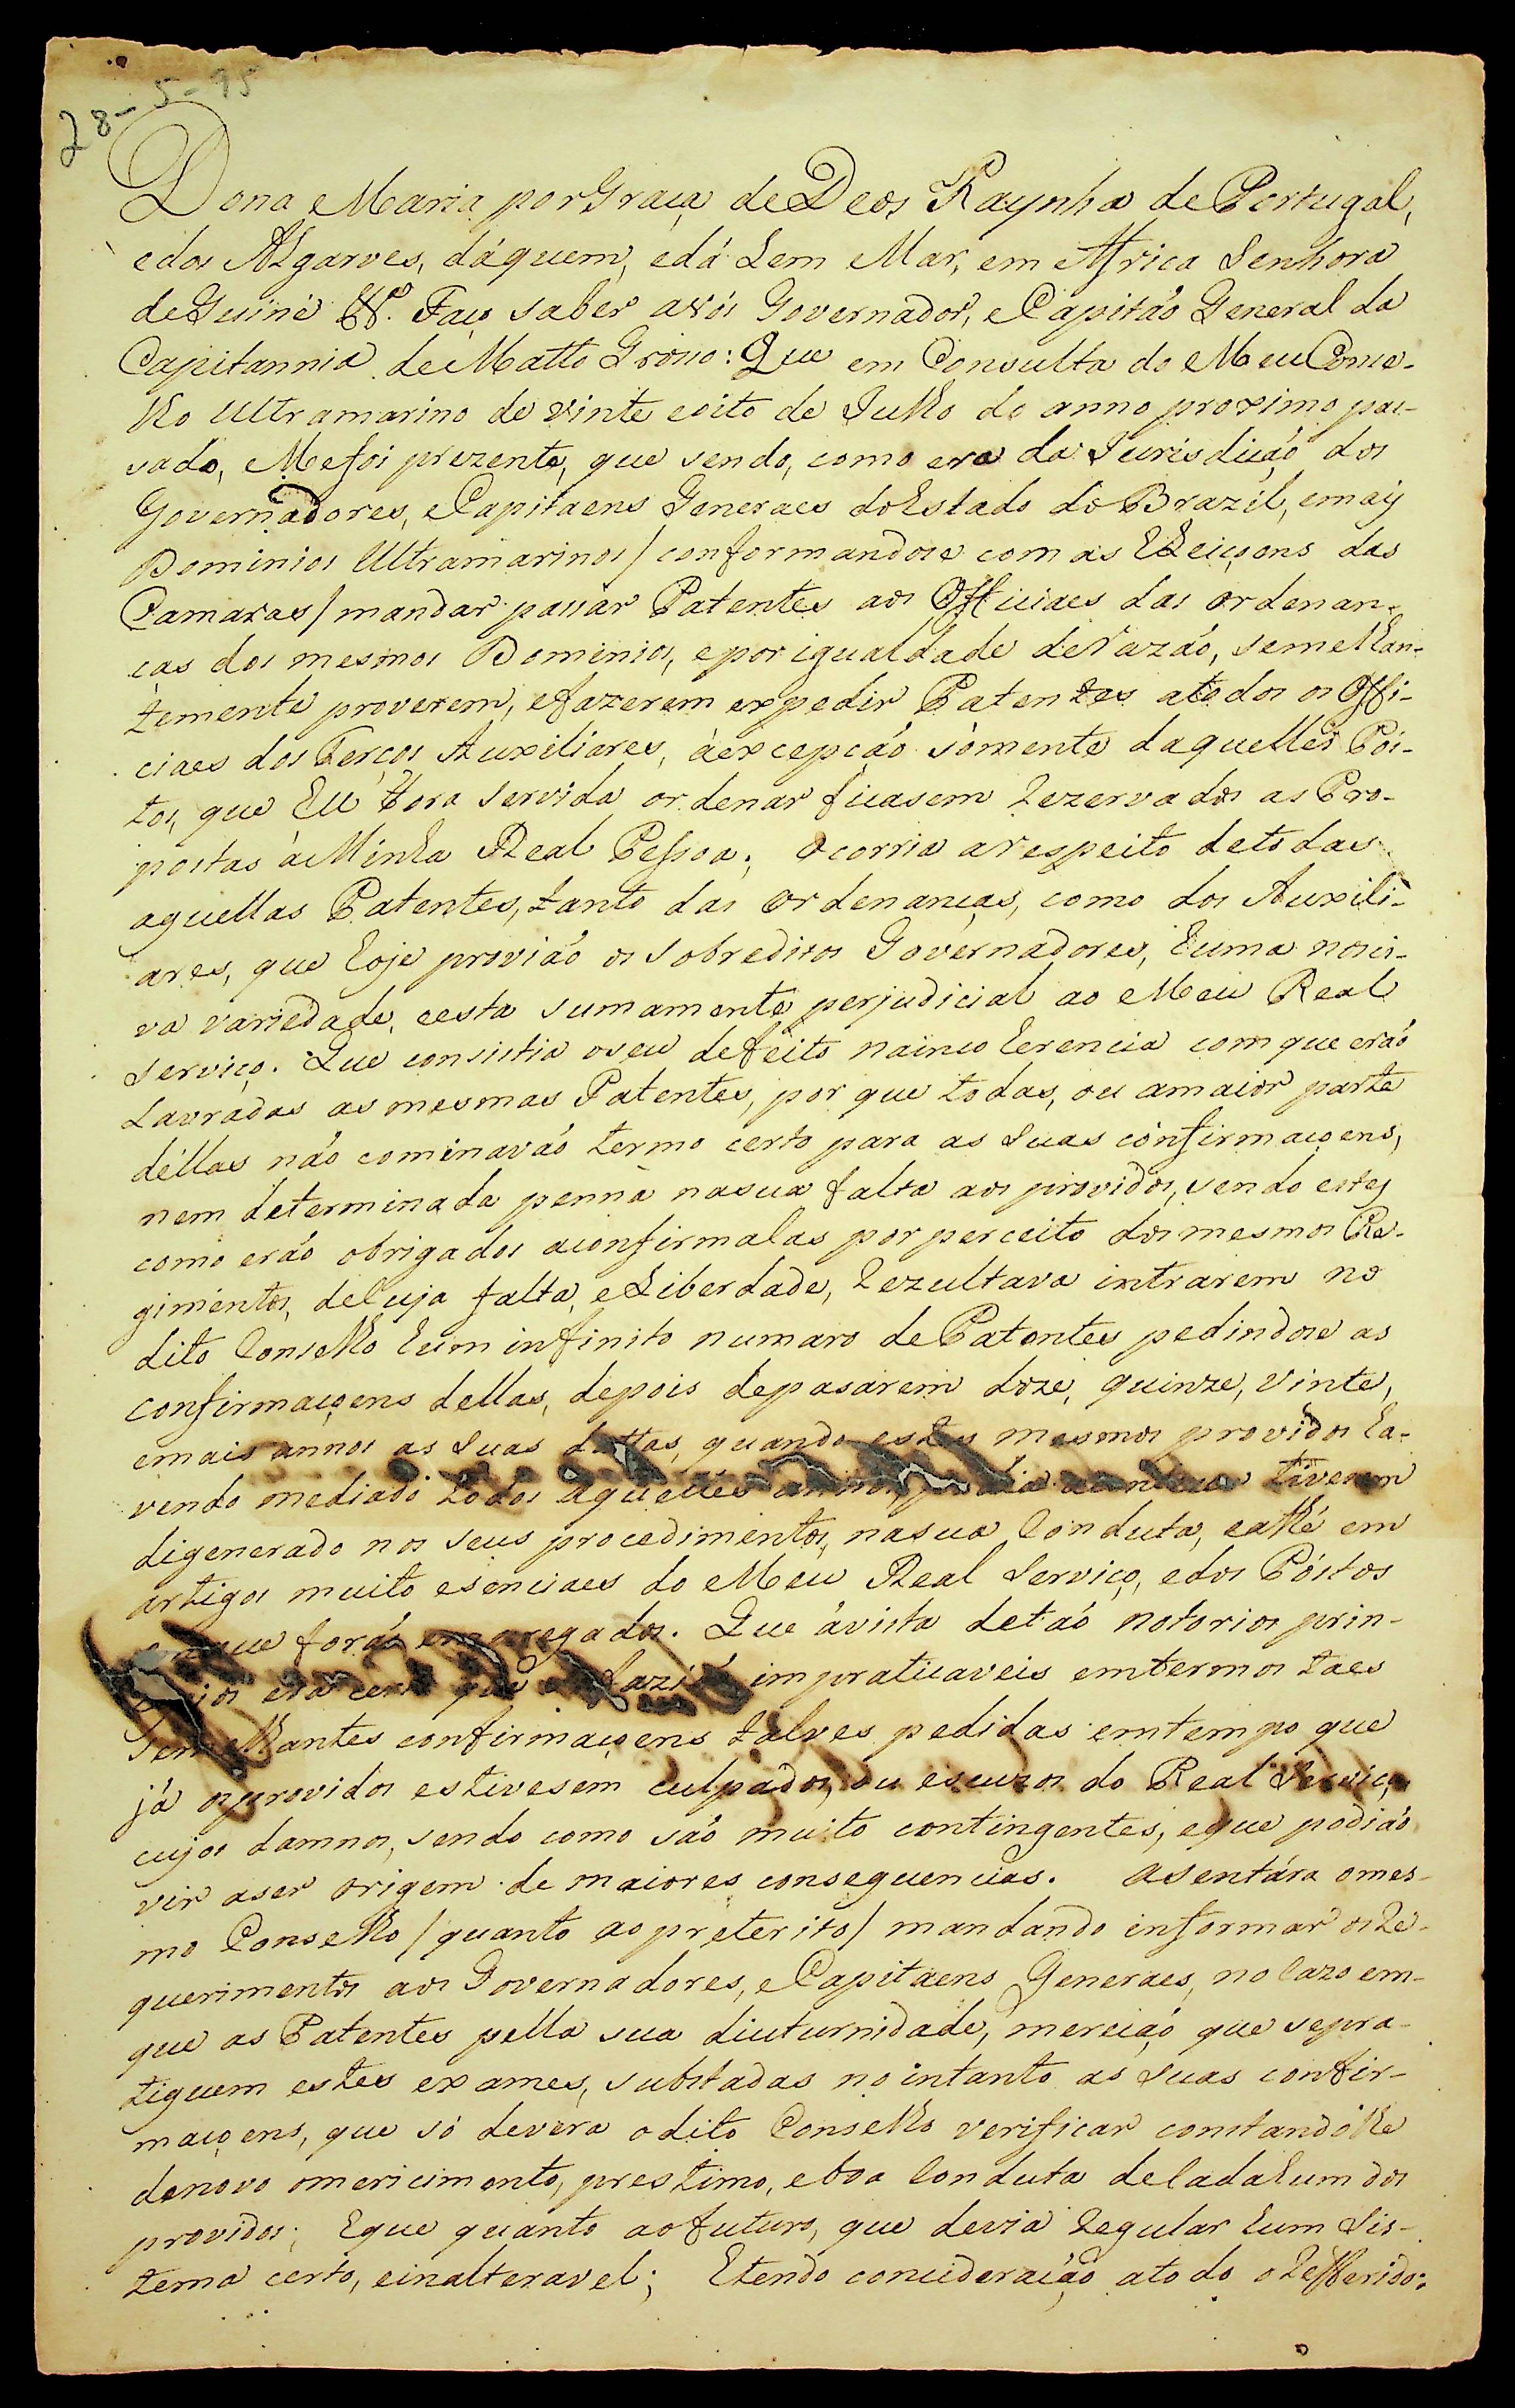 28-5-95
Dona Maria por Graça de Deos Raynha de Portugal,
e dos Algarves, dáquem, edá Lem Mar, em Africa Senhora
de Guiné &ª. Faço saber avós Governador, e Capitáo General da
Capitannia de Matto Grosso: Que em Consulta do Meu Conse-
lho Ultramarino de vinte eoito de Julho do anno proximo pas-
sado, Mefoi prezente, que sendo, como era da Jurisdiçáo dos
Governadores, e Capitaens Generaes do Estado do Brazil, emais
Dominios Ultramarinos / conformandose com as Elleiçoens das
Camaras / mandar passar Patentes aos Officiaes das ordenan-
ças dos mesmos Dominios, epor igualdade derazáo, semelhan-
temente proverem, efazerem expedir Patentes atodos os Offi-
ciaes dos Terços Auxiliares, áexcepçáo sómente daquelles Pós-
tos, que Eu fora Servida ordenar ficasem rezervados as Pro-
postas áMinha Real Pessoa; ocorria arespeito detodas
aquellas Patentes, tanto das ordenanças, como dos Auxili-
ares, que hoje proviáo os sobreditos Governadores, huma noci-
va variedade, eesta sumamente perjudicial ao Meu Real
serviço. Que consistia oseu defeito naincoherencia comque eráo
Lavradas as mesmas Patentes, por que todas, ou amaior parte
déllas náo cominaváo termo certo para as suas confirmaçoens,
nem determinada penna nasua falta aos providos, sendo estes
como eráo obrigados aconfirmalas por perceito dos mesmos Re-
gimentos, decuja falta, eLiberdade, rezultava intrarem no
dito Conselho hum infinito numaro de Patentes pedindose as
confirmaçoens dellas, depois depasarem doze, quinze, vinte,
emais annos as suas dattas, quando estes mesmos providos ha-
vendo mediado todos aquelles annos, tiverem
digenerado nos seus procedimentos, nasua Conduta, eathé em
artigos muito esenciaes do Meu Real Serviço, edos Póstos
emque foráo empregados. Que ávista detáo notorios prin-
cipios era certo que faziáo impraticaveis emtermos taes
Semelhantes confirmaçoens talves pedidas emtempo que
já osprovidos estivesem culpados, ou escuzos do Real Serviço
cujos damnos, sendo como sáo muito contingentes, eque podiáo
vir aser origem de maiores consequencias. Asentára omes-
mo Conselho / quanto ao preterito / mandando informar os re-
querimentos aos Governadores, e Capitaens Generaes, no cazo em-
que as Patentes pella sua diuturnidade, mereiçáo que sepra-
tiquem estes exames, substadas no intanto as suas confir-
maçoens, que só devera odito Conselho verificar constandólhe
denovo omericimento, prestimo, eboa Conduta decadahum dos
providos; Eque quanto aofuturo, que devia regular hum Sis-
tema certo, einalteravel; Etendo concideraçáo atodo o refferido: